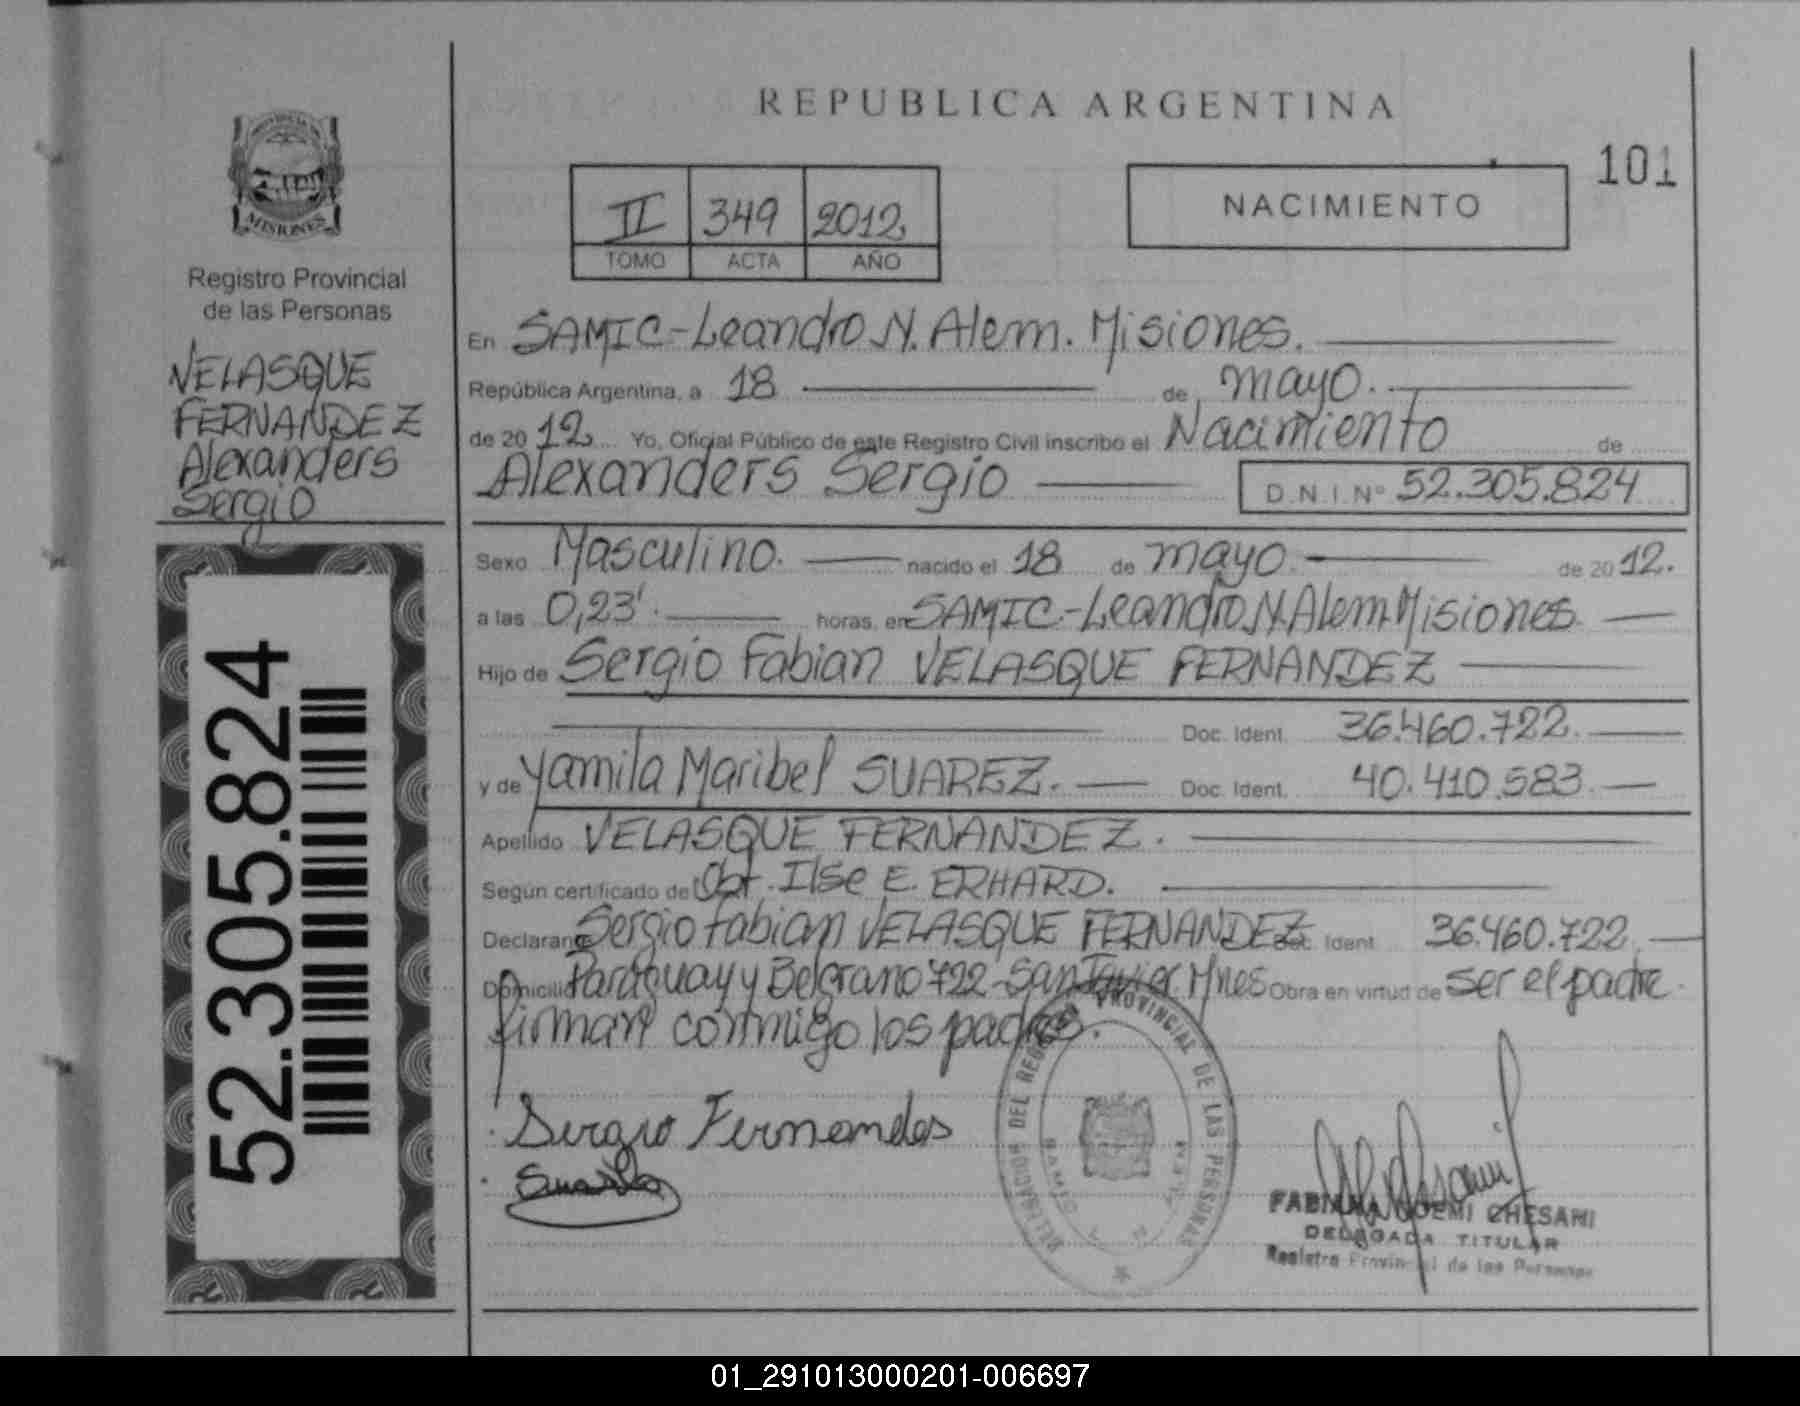 REPUBLICA ARGENTINA
101
NACIMIENTO
II 349 2012
TOMO ACTA AÑO
PROVINCIA DE
MISIONES
Registro Provincial
de las Personas
VELASQUE
FERNANDEZ
Alexanders
Sergio
52.305.824
En SAMIC-Leandro N. Alem. Misiones.
República Argentina, a 18 de mayo.
de 20 12 Yo, Oficial Público de este Registro Civil inscribo el Nacimiento de
Alexanders Sergio D.N.I. Nº 52.305.824
Sexo Masculino. nacido el 18 de mayo. de 20 12.
a las 0,23'. horas, en SAMIC.-Leandro N. Alem. Misiones.
Hijo de Sergio Fabian VELASQUE FERNANDEZ
Doc. Ident. 36.460.722.
y de Yamila Maribel SUAREZ. Doc. Ident. 40.410.583.
Apellido VELASQUE FERNANDEZ.
Según certificado de Obt. Ilse E. ERHARD.
Declarante Sergio Fabian VELASQUE FERNANDEZ Doc. Ident. 36.460.722.
Domicilio Paraguay y Belgrano 722-San Javier. Mnes Obra en virtud de ser el padre.
firman conmigo los padres.
Sergio Fernandes
DELEGACION DEL REGISTRO PROVINCIAL DE LAS PERSONAS
SAMIC L. N. ALEM
FABIANA NOEMI CHESANI
DELEGADA TITULAR
Registro Provincial de las Personas
01_291013000201-006697